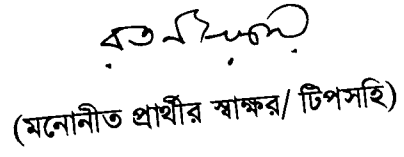 (মনোনীত প্রার্থীর স্বাক্ষর/ টিপসহি)